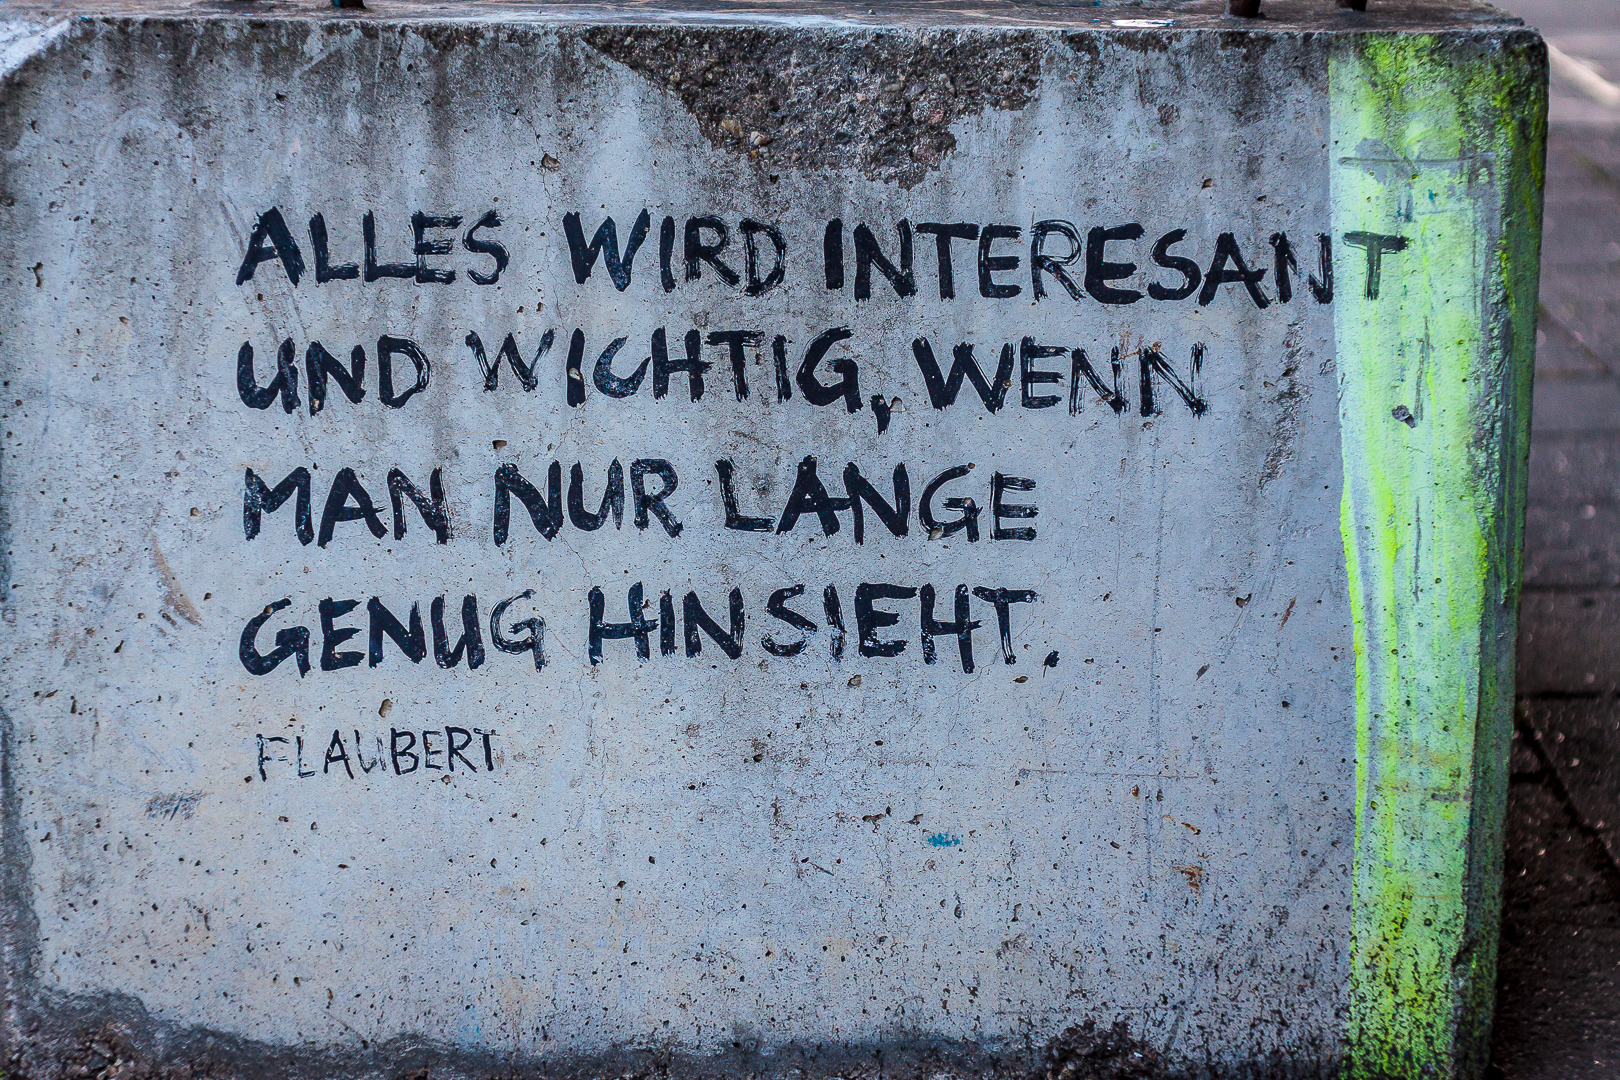 ALLES WIRD INTERESANT
UND WICHTIG, WENN
MAN NUR LANGE
GENUG HINSIEHT.
FLAUBERT